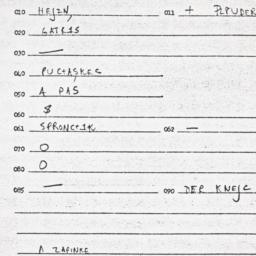 010 HEJZN, 011 + PLPUDER
020 GATRIS
030 —
040 PUCTASKES
050 A PAS
060 $
061 SPRONCCIK 062 —
070 0
080 0
085 — 090 DER KNEJC
A ZAFINKE